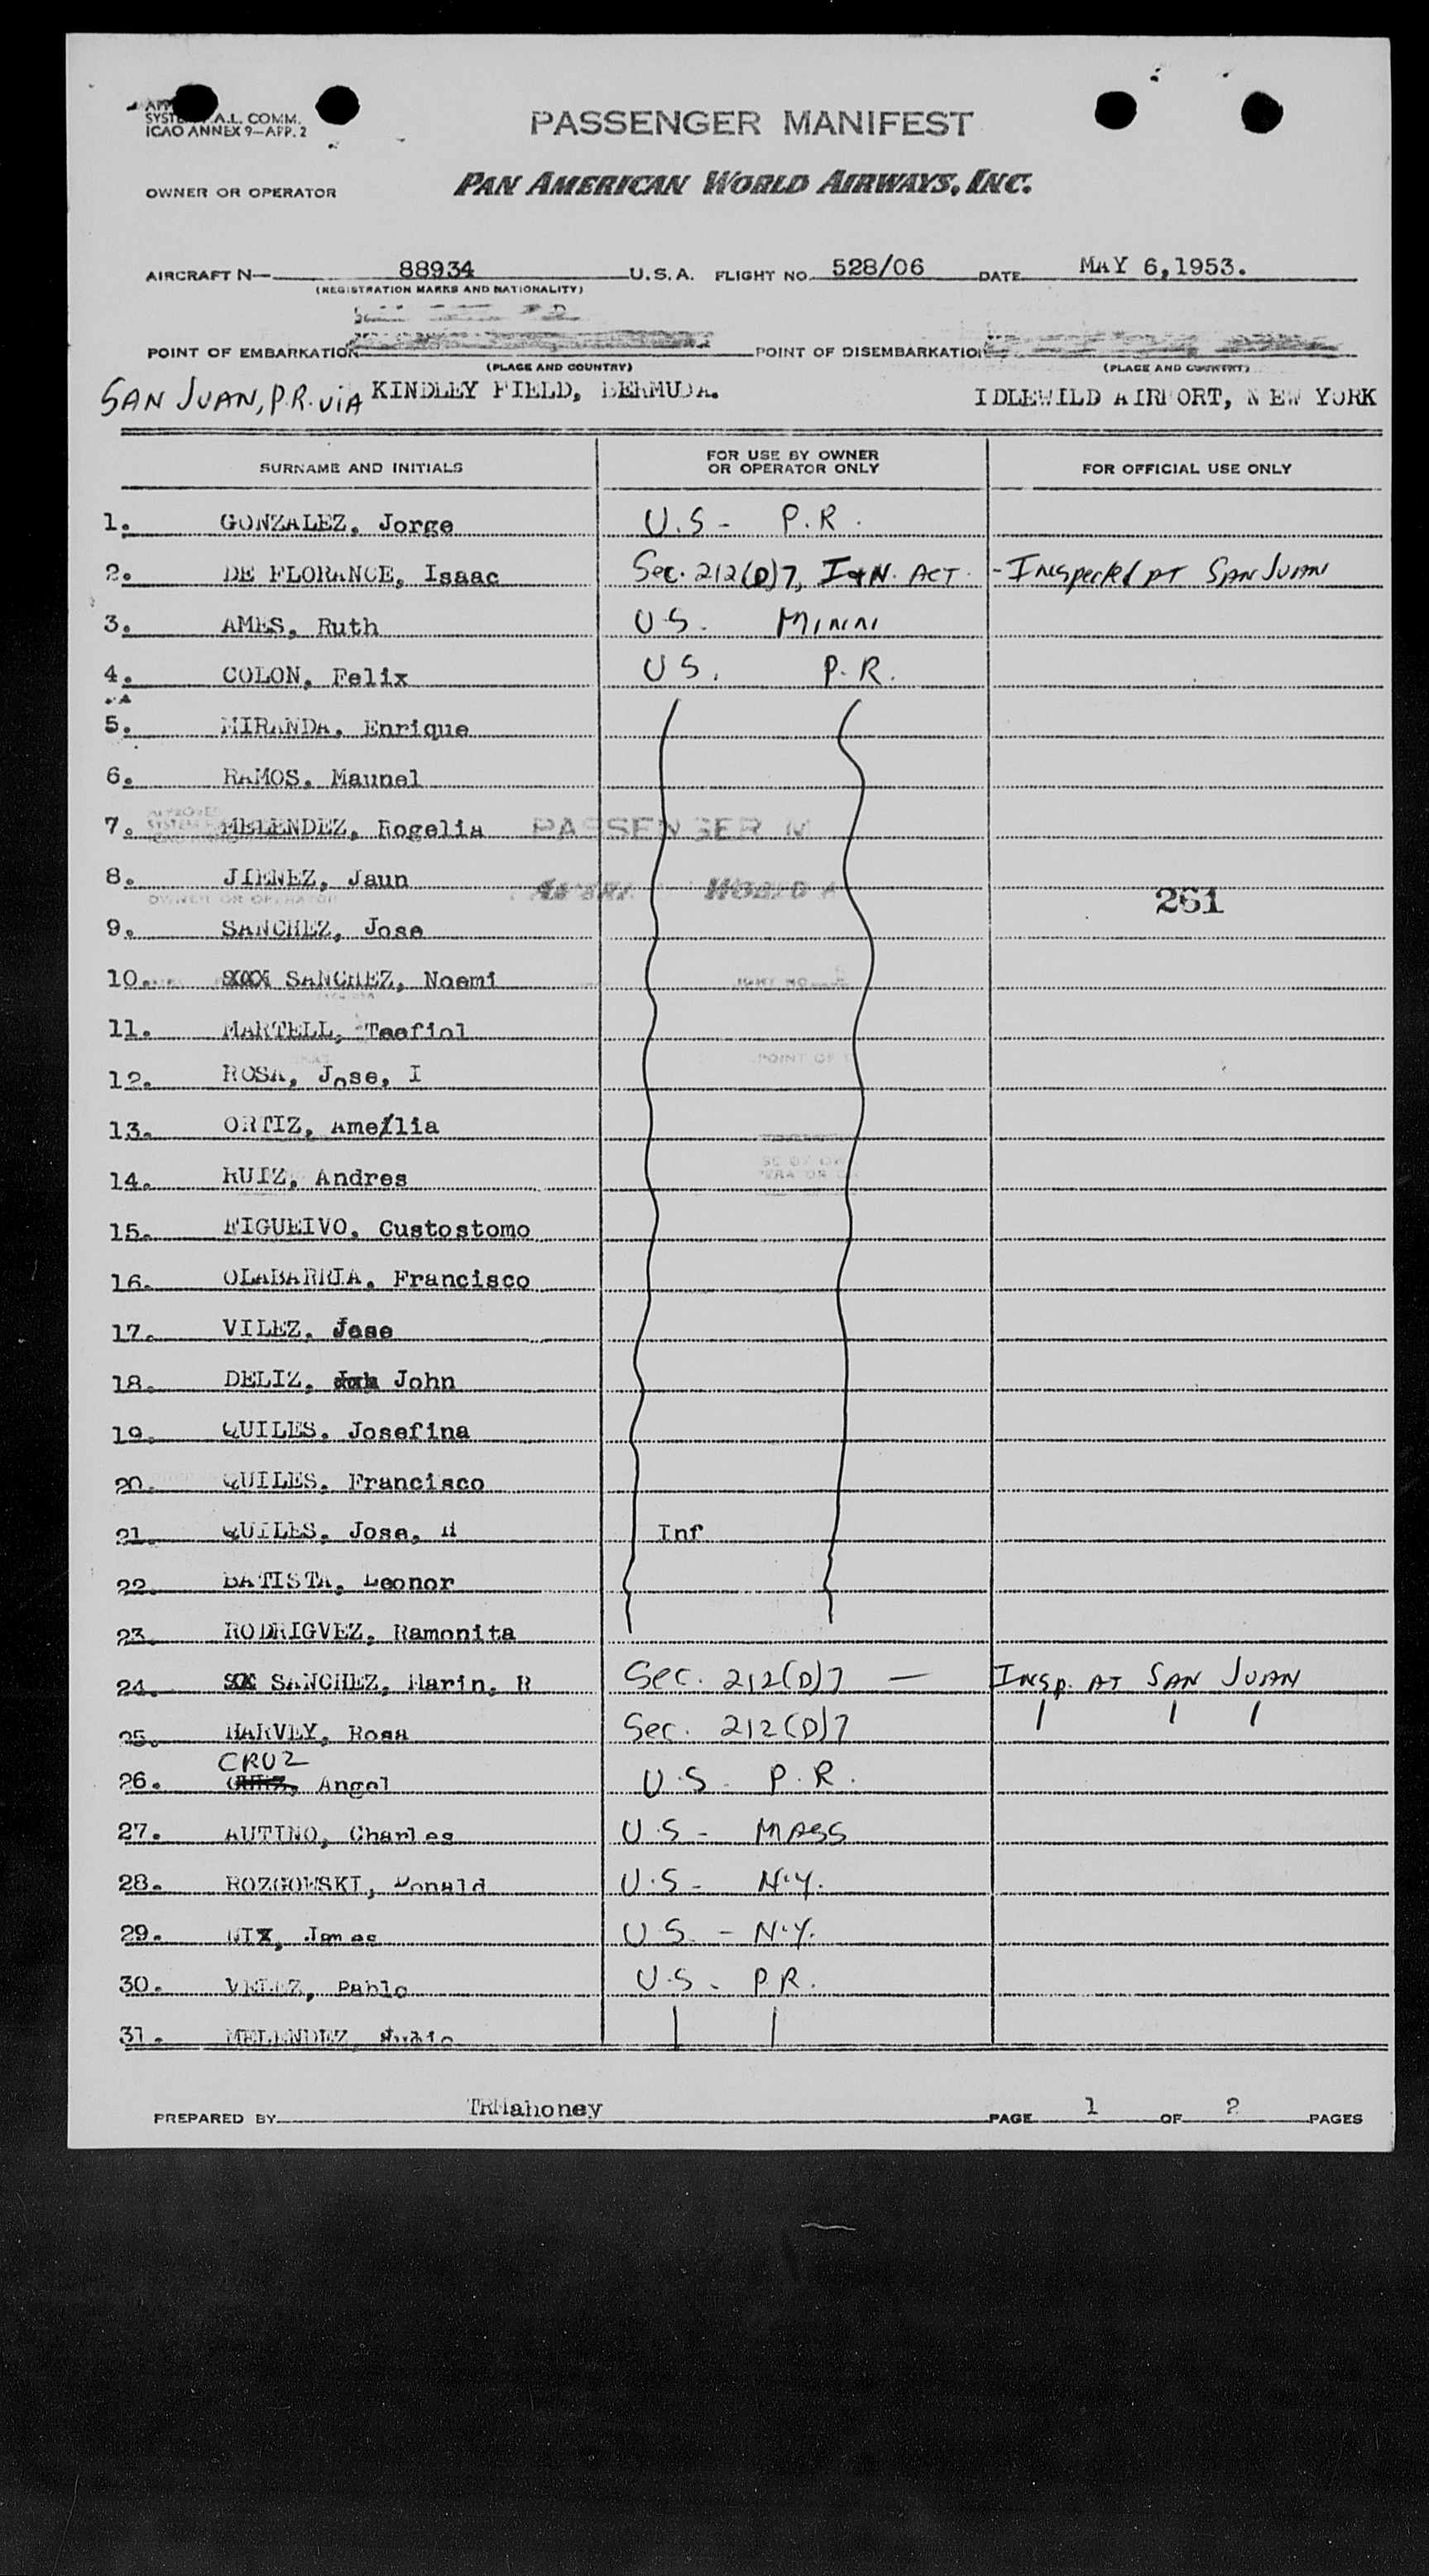 SYSTEM A.L. COMM.
ICAO ANNEX 9—APP. 2
PASSENGER MANIFEST
OWNER OR OPERATOR PAN AMERICAN WORLD AIRWAYS, INC.
AIRCRAFT N— 88934 U.S.A. FLIGHT NO. 528/06 DATE MAY 6,1953.
(REGISTRATION MARKS AND NATIONALITY)
POINT OF EMBARKATION POINT OF DISEMBARKATION
(PLACE AND COUNTRY) (PLACE AND COUNTRY)
SAN JUAN, P.R. VIA KINDLEY FIELD, BERMUDA. IDLEWILD AIRPORT, NEW YORK
SURNAME AND INITIALS FOR USE BY OWNER OR OPERATOR ONLY FOR OFFICIAL USE ONLY
1. GONZALEZ, Jorge U.S - P.R.
2. DE FLORANCE, Isaac Sec. 212(D)7, I+N. ACT. - Inspected AT SAN JUAN
3. AMES, Ruth U.S. MINN
4. COLON, Felix U S. P.R.
5. MIRANDA, Enrique
6. RAMOS, Maunel
7. MELENDEZ, Rogelia PASSENGER M
8. JIENEZ, Jaun WORLD A
OWNER OR OPERATOR 261
9. SANCHEZ, Jose
10. SANCHEZ, Noemi
11. MARTELL, Teofiol
POINT OF
12. ROSA, Jose, I
13. ORTIZ, Amelia
14. RUIZ, Andres
15. FIGUEIVO, Custostomo
16. OLABARRIA, Francisco
17. VILEZ, Jose
18. DELIZ, John
19. QUILES, Josefina
20. QUILES, Francisco
21. QUILES, Jose, H Inf
22. BATISTA, Leonor
23. RODRIGVEZ, Ramonita
24. SANCHEZ, Marin, R Sec. 212(D)7 — INSP. AT SAN JUAN
25. HARVEY, Rosa Sec. 212(D)7
CRUZ
26. Angel U.S. P.R.
27. AUTINO, Charles U.S - MASS
28. ROZGOWSKI, Donald U.S - N.Y.
29. NIX, James U S. - N.Y.
30. VELEZ, Pablo U.S - P.R.
31. MELENDEZ,
PREPARED BY TRMahoney PAGE 1 OF 2 PAGES